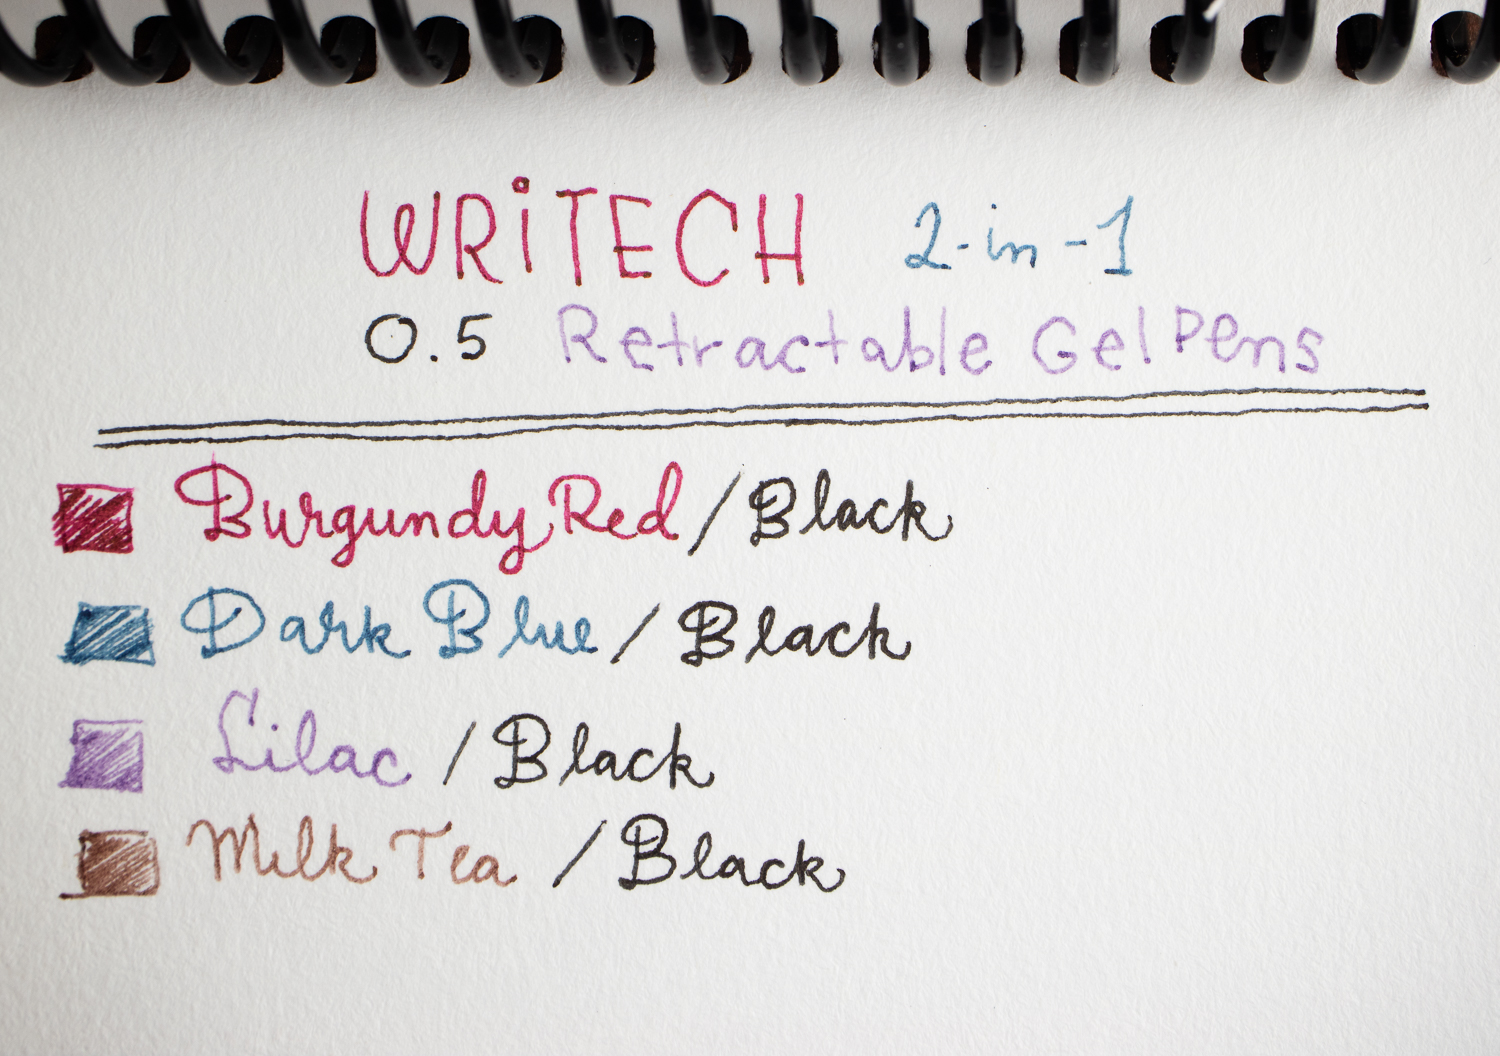 WRiTECH 2-in-1
0.5 Retractable Gel Pens
Burgundy Red / Black
Dark Blue / Black
Lilac / Black
Milk Tea / Black